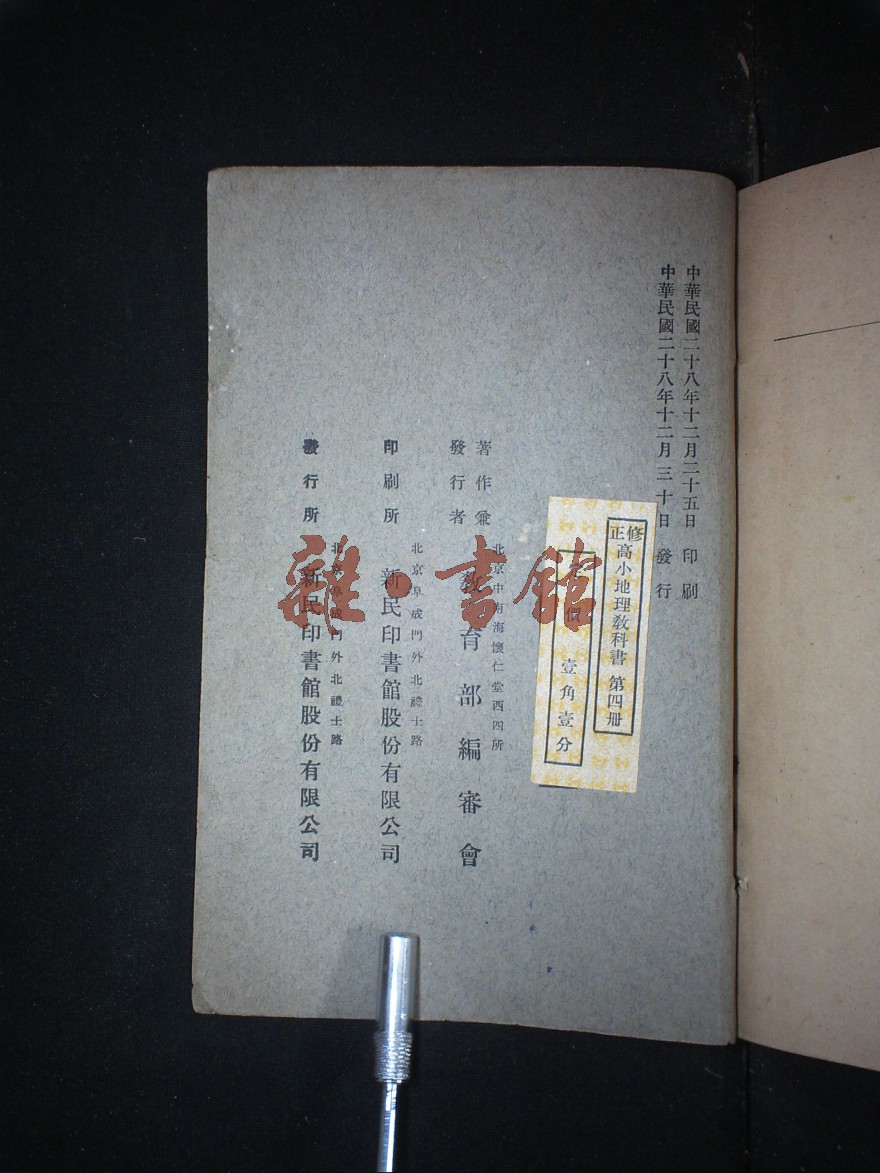 中華民國二十八年十二月二十五日 印刷
中華民國二十八年十二月三十日 發行
修正高小地理教科書 第四册
價 壹角壹分
北京中南海懷仁堂西四所
著作兼
發行者
教育部編審會
北京阜成門外北禮士路
印刷所 新民印書館股份有限公司
北京阜成門外北禮士路
發行所 新民印書館股份有限公司
雜·書館